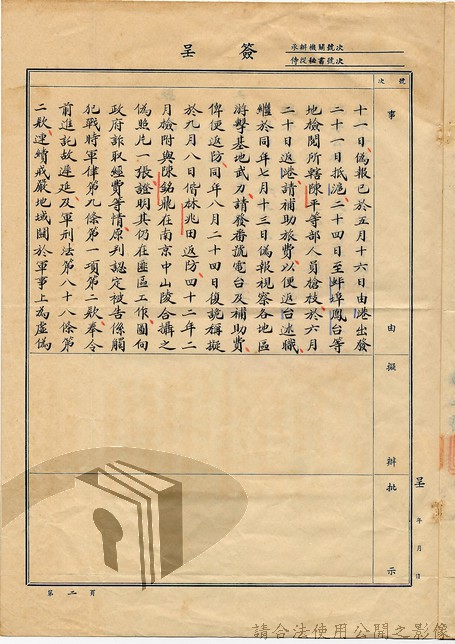 簽呈
承辦機關號次
侍從祕書號次
號次
事由
擬辦
批示
十一日、偽報已於五月十六日由港出發
二十一日抵滬、二十四日至蚌埠鳳台等
地檢閱所轄陳平等部人員槍枝、於六月
二十日返港請補助旅費以便返台述職、
繼於同年七月十三日偽報視察各地區
游擊基地武力請發番號電台及補助費、
俾便返防、同年八月二十四日復詭稱擬
於九月八日偕林兆田返防、四十二年二
月檢附與陳銘鼎在南京中山陵合攝之
偽照片一張證明其仍在匪區工作圖向
政府詐取經費等情、原判認定被告係觸
犯戰時軍律第九條第一項第二款、奉令
前進託故遲延、及軍刑法第八十八條第
二款連續戒嚴地域關於軍事上為虛偽
呈 年 月 日
第二頁
請合法使用公開之影像